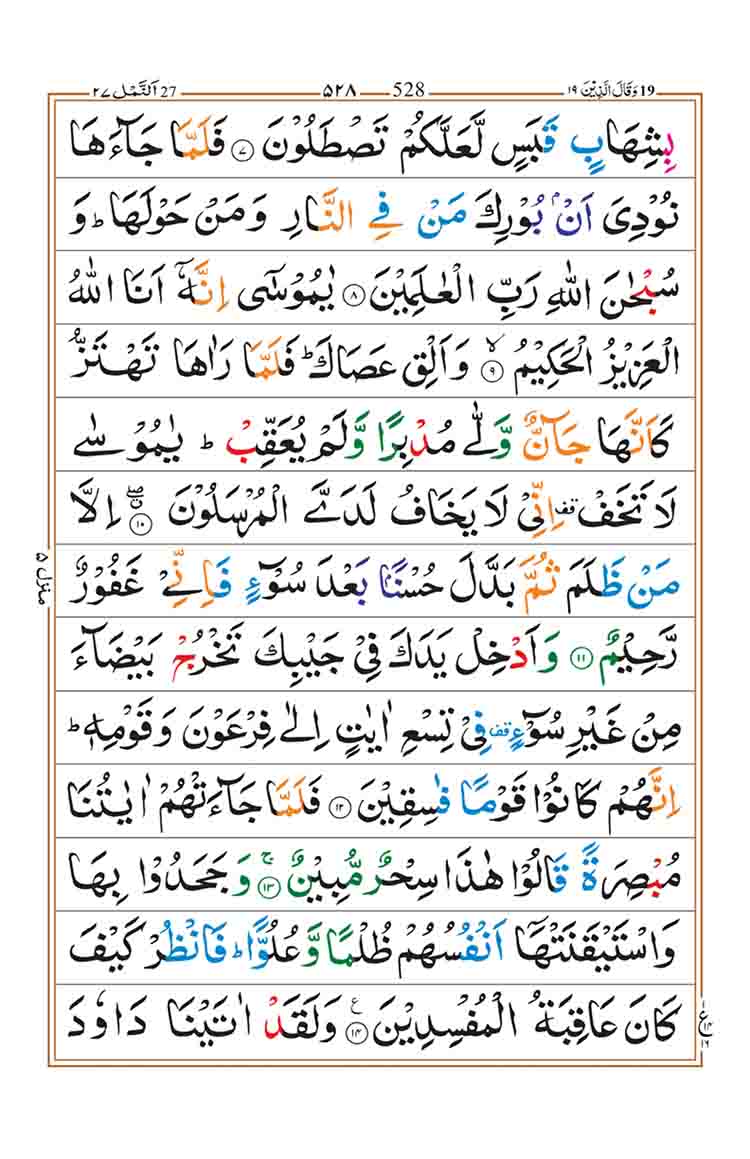 19 وَقَالَ الَّذِيْنَ ١٩ 528 ٥٢٨ 27 اَلنَّمْل ٢٧
بِشِهَابٍ قَبَسٍ لَّعَلَّكُمْ تَصْطَلُوْنَ ۝٧ فَلَمَّا جَآءَهَا
نُوْدِىَ اَنْۢ بُوْرِكَ مَنْ فِى النَّارِ وَمَنْ حَوْلَهَا ؕ وَ
سُبْحٰنَ اللّٰهِ رَبِّ الْعٰلَمِيْنَ ۝٨ يٰمُوْسٰٓى اِنَّهٗۤ اَنَا اللّٰهُ
الْعَزِيْزُ الْحَكِيْمُ ۙ۝٩ وَاَلْقِ عَصَاكَ ؕ فَلَمَّا رَاٰهَا تَهْتَزُّ
كَاَنَّهَا جَآنٌّ وَّلّٰى مُدْبِرًا وَّلَمْ يُعَقِّبْ ؕ يٰمُوْسٰى
لَا تَخَفْ قف اِنِّىْ لَا يَخَافُ لَدَىَّ الْمُرْسَلُوْنَ ۖ۝١٠ اِلَّا
مَنْ ظَلَمَ ثُمَّ بَدَّلَ حُسْنًۢا بَعْدَ سُوْٓءٍ فَاِنِّىْ غَفُوْرٌ
رَّحِيْمٌ ۝١١ وَاَدْخِلْ يَدَكَ فِىْ جَيْبِكَ تَخْرُجْ بَيْضَآءَ
مِنْ غَيْرِ سُوْٓءٍ قف فِىْ تِسْعِ اٰيٰتٍ اِلٰى فِرْعَوْنَ وَقَوْمِهٖ ؕ
اِنَّهُمْ كَانُوْا قَوْمًا فٰسِقِيْنَ ۝١٢ فَلَمَّا جَآءَتْهُمْ اٰيٰتُنَا
مُبْصِرَةً قَالُوْا هٰذَا سِحْرٌ مُّبِيْنٌ ۚ۝١٣ وَجَحَدُوْا بِهَا
وَاسْتَيْقَنَتْهَاۤ اَنْفُسُهُمْ ظُلْمًا وَّعُلُوًّا ؕ فَانْظُرْ كَيْفَ
كَانَ عَاقِبَةُ الْمُفْسِدِيْنَ ۝١٤ ع وَلَقَدْ اٰتَيْنَا دَاوٗدَ
منزل ٥
ع
١٦